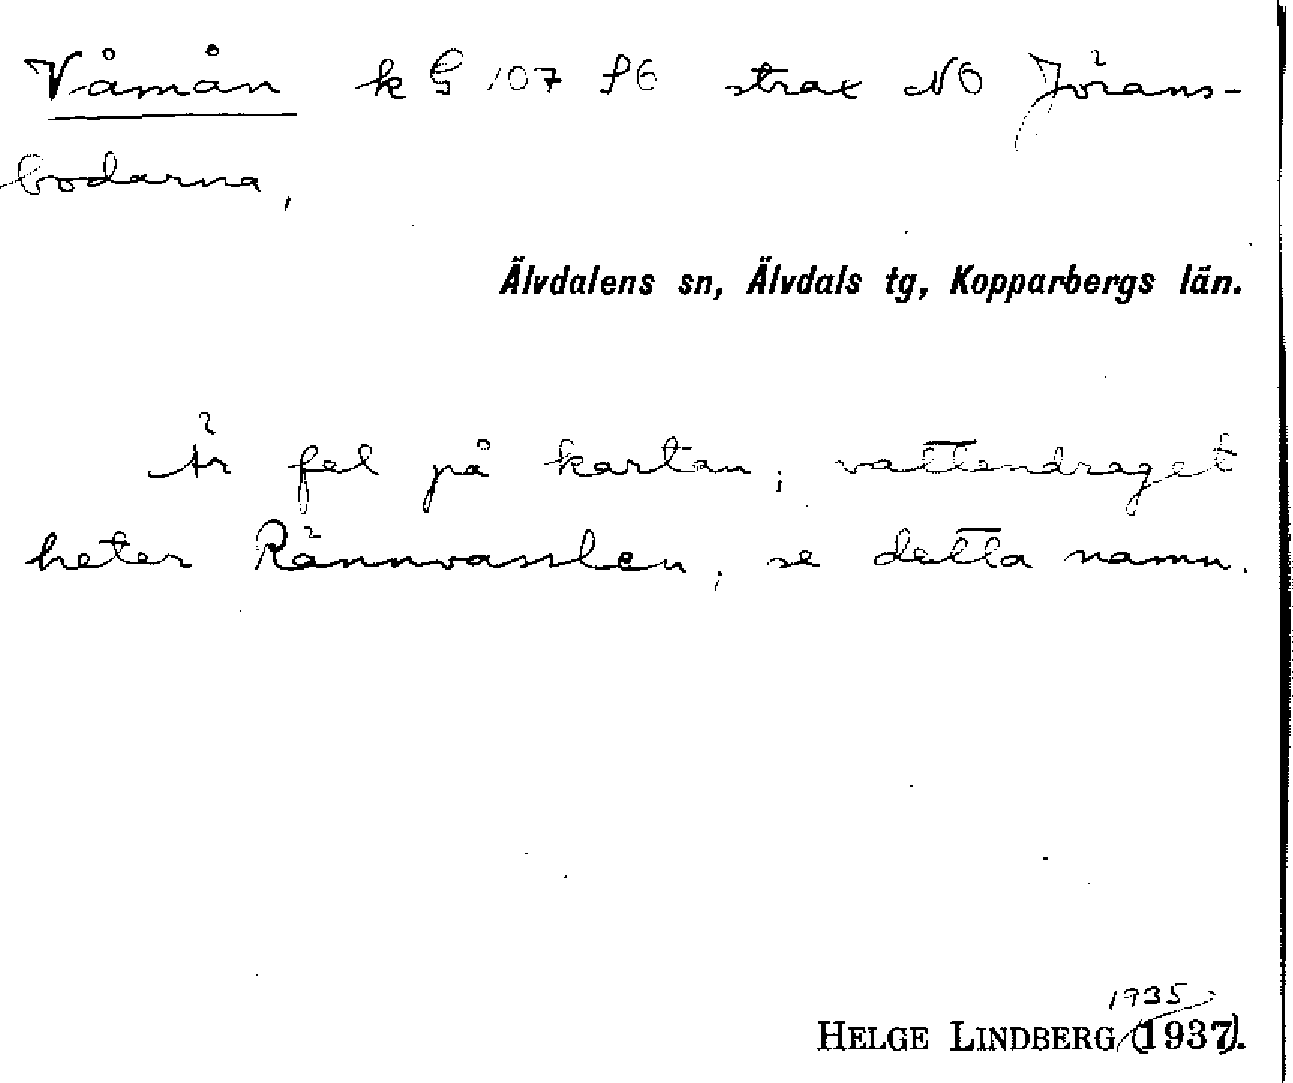 Våmån k G 107 f6 strax NO Jörans-
bodarna,
Älvdalens sn, Älvdals tg, Kopparbergs län.
Är fel på kartan; vattendraget
heter Rännvasslen; se detta namn.
1935
HELGE LINDBERG (1937).